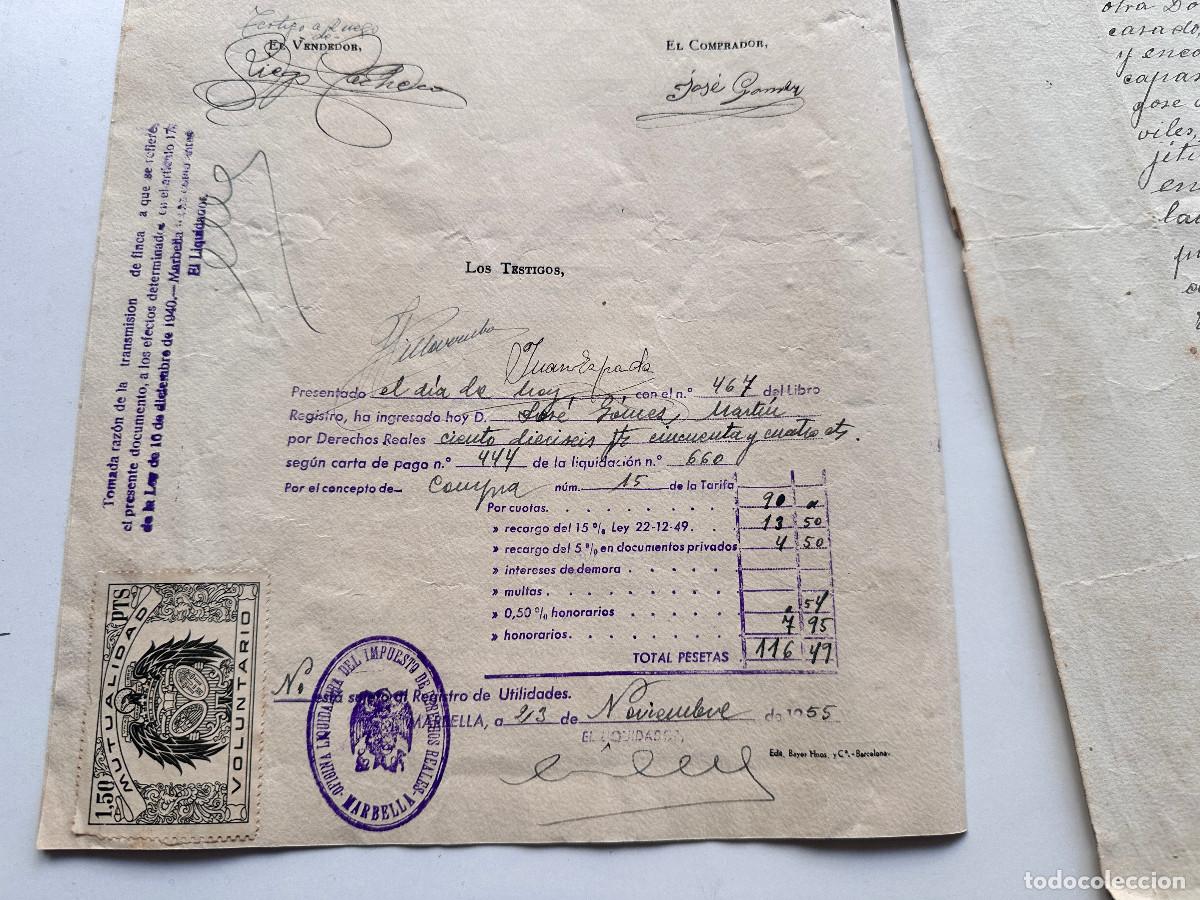 Testigo a ruego
do
EL VENDEDOR,
Diego Pacheco
EL COMPRADOR,
José Gomez
Tomada razón de la transmision de finca a que se refiere,
el presente documento, a los efectos determinados en el artículo 17
de la Ley de 16 de diciembre de 1940.— Marbella
El Liquidador,
LOS TESTIGOS,
Villarrubia
Juan Espada
Presentado el día de hoy con el n.º 467 del Libro
Registro, ha ingresado hoy D. José Gómez Martin
por Derechos Reales ciento dieciseis pts cincuenta y cuatro cts.
según carta de pago n.º 444 de la liquidación n.º 660
Por el concepto de Compra núm. 15 de la Tarifa
Por cuotas. 90 "
» recargo del 15 % Ley 22-12-49. 13 50
» recargo del 5 % en documentos privados 4 50
» intereses de demora
» multas.
» 0,50 % honorarios " 54
» honorarios. 7 95
TOTAL PESETAS 116 49
No está sujeto al Registro de Utilidades.
MARBELLA, a 23 de Noviembre de 1955
EL LIQUIDADOR,
Edit. Bayer Hnos. y Cª.-Barcelona.
OFICINA LIQUIDADORA DEL IMPUESTO DE DERECHOS REALES
- MARBELLA -
MUTUALIDAD
1,50 PTS
VOLUNTARIO
otra Do
casado,
y enco
capas
Jose
viles,
jiti
en
la
todocoleccion